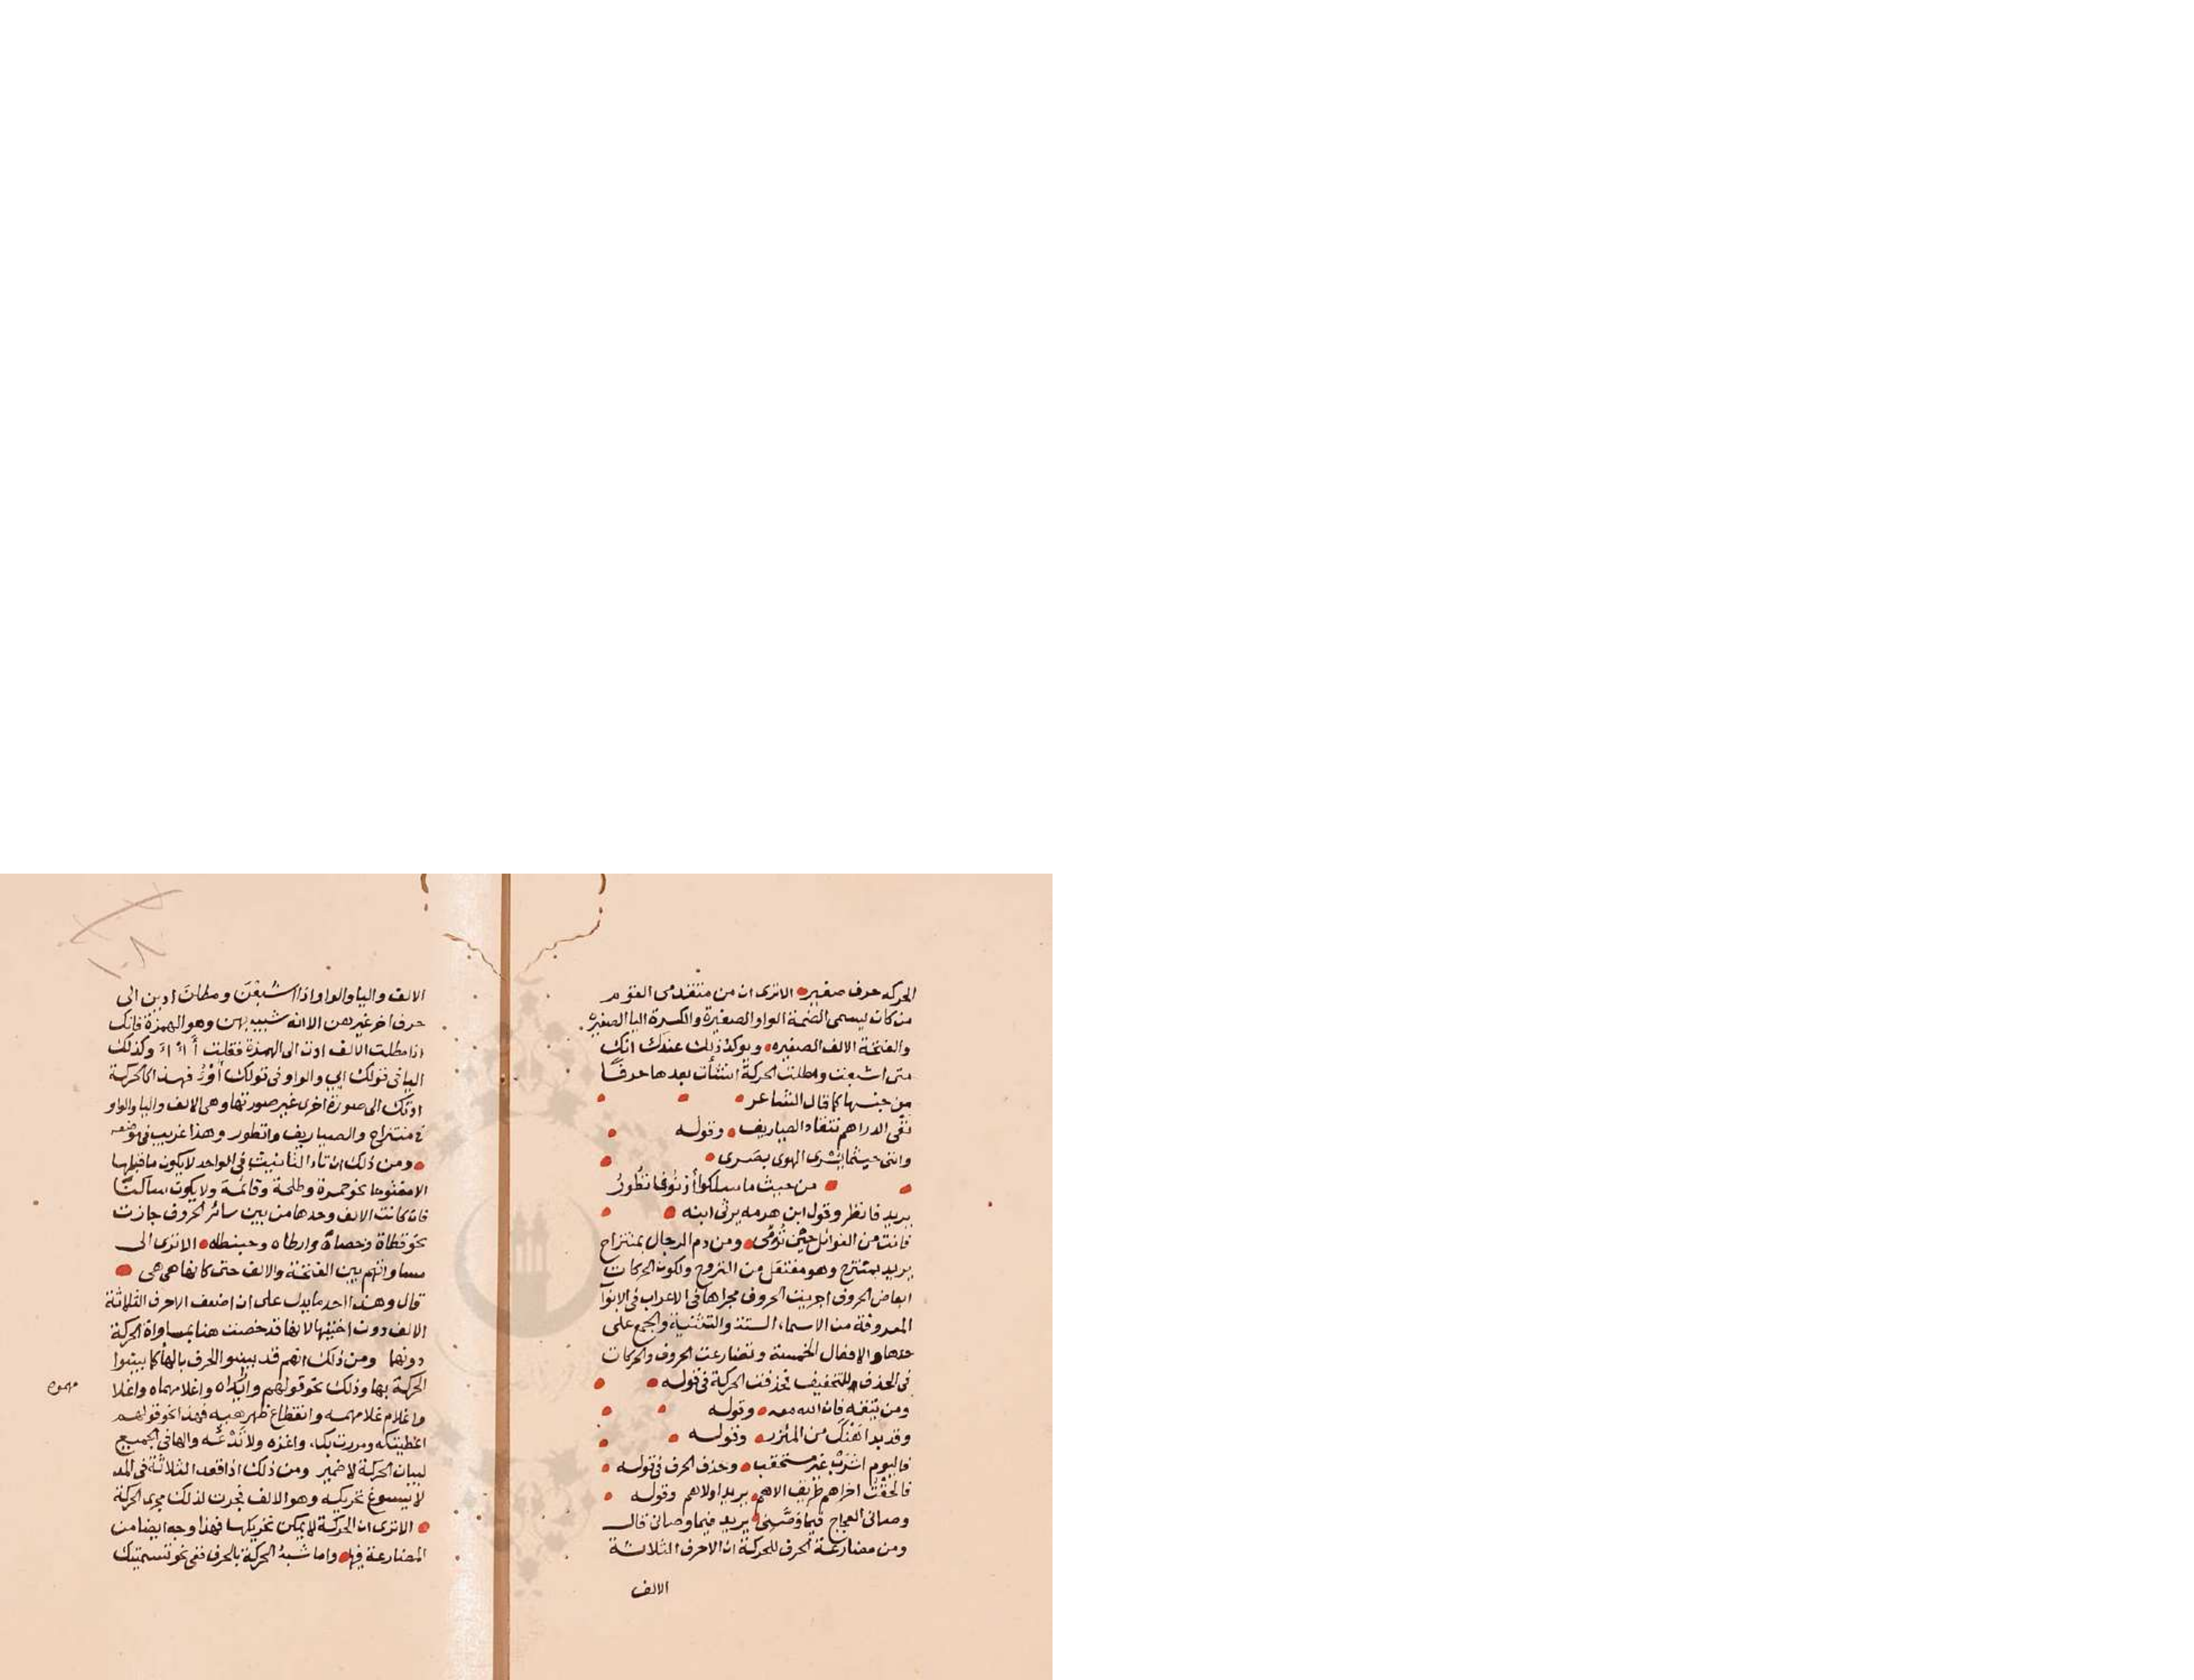 الحركه حرف صغير الا ترى ان من متقدمى القوم
من كان يسمى الضمة الواو الصغيرة والكسرة اليا الصغيره
والفتحة الالف الصغيره ويوكد ذلك عندك انك
متى اشبعت ومطلت الحركة انشأت بعدها حرفًا
من جنسها كما قال الشاعر
نفى الدراهم تنقاد الصياريف وقوله
واننى حيثما يشرى الهوى بصرى
من حيث ما سلكوا أدنو فانظورُ
يريد فانظر وقول ابن هرمه يرثى ابنه
فانت من الغوائل حين تُرمى ومن ذم الرجال بمنتزاح
يريد بمنتزح وهو مفتعل من النزوح ولكون الحركات
ابعاض الحروف اجريت الحروف مجراها فى الاعراب فى الابوآ
المعروفة من الاسماء الستة والتثنية والجمع على
حدها والافعال الخمسة وتضارعت الحروف والحركات
فى الحذف للتخفيف فحذفت الحركة فى قوله
ومن يتقه فان الله معه وقوله
وقد بدا هَنْكِ من المئزر وقوله
فاليوم اشرَبْ غير مستحقب وحذف الحرف فى قوله
فالحقت اخراهم طريق الاهم يريد اولاهم وقوله
وصانى العجاج فيما وَصَّنِى يريد فيما وصانى قال
ومن مضارعة الحرف للحركة ان الاحرف الثلاثة
الالف
١٠٨
الالف واليا والواو اذا اشبعْنَ ومطلنَ ادين الى
حرف اخر غيرهن الا انه شبيه بهن وهو الهمزة فانك
اذا مطلت الالف ادت الى الهمزة فقلت أاء وكذلك
اليا فى قولك إى والواو فى قولك أوْ فهذا كالحركة
ادتك الى صورة اخرى غير صورتها وهى الالف واليا والواو
فى منتزاح والصياريف وانظور وهذا غريب فى موضعه
ومن ذلك ان تاء التانيث فى الواحد لا يكون ما قبلها
الا مفتوحا نحو حمزة وطلحة وقائمة ولا يكون ساكنًا
فان كانت الالف وحدها من بين سائر الحروف جازت
نحو قطاة وحصاة وارطاه وحبنطاه الا ترى الى
مساواتهم بين الفتحة والالف حتى كانها هى هى
قال وهذا احد ما يدل على ان اضعف الاحرف الثلاثة
الالف دون اختيها لانها قد خصت هنا بمساواة الحركة
دونها ومن ذلك انهم قد بينوا الحرف بالها كما بينوا
الحركة بها وذلك نحو قولهم وازيداه واغلامهماه واغلا
مهموه
واغلام غلامهمه وانقطاع ظهرهيه فهذا نحو قولهم
اعطيتكه ومررت بكه واغزه ولا تدْعُه والها فى الجميع
لبيان الحركة لا ضمير ومن ذلك اذا قعد الثلاثة فى المد
لا يسوغ تحريكه وهو الالف فجرت لذلك مجرى الحركة
الا ترى ان الحركة لا يمكن تحريكها فهذا وجه ايضا من
المضارعة فيها واما شبه الحركة بالحرف ففى نحو تسميتك